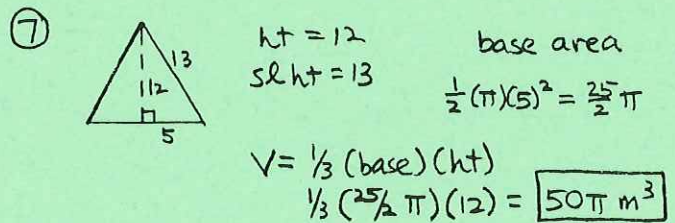 7
13
12
5
ht = 12
sl ht = 13
base area
½(π)(5)² = 25/2 π
V = ⅓ (base)(ht)
⅓ (25/2 π)(12) = 50π m³